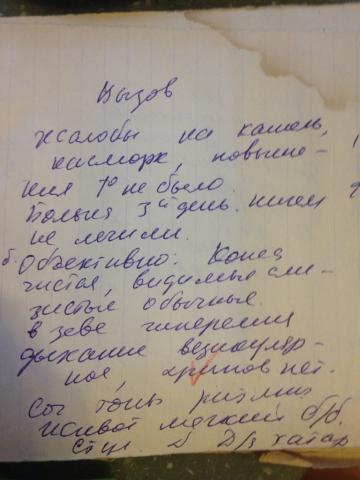 Вызов
жалобы на кашель,
насморк, повыше-
ния t° не было.
Больна 3й день. ничем
не лечили.
Объективно: Кожа
чистая, видимые сли-
зистые обычные.
в зеве гиперемия
дыхание везикуляр-
ное, хрипов нет.
Сог тоны ритмич
Живот мягкий б/б.
Стул N D/s катар